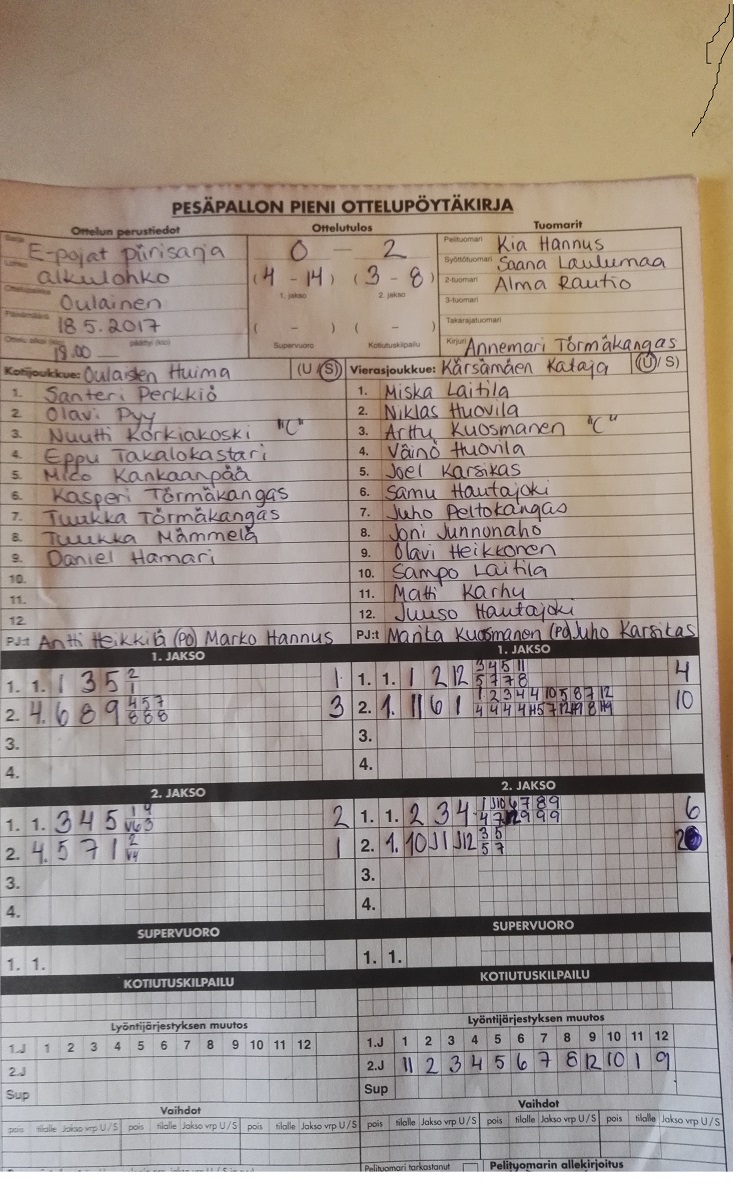 PESÄPALLON PIENI OTTELUPÖYTÄKIRJA
Ottelun perustiedot Ottelutulos Tuomarit
Sarja E-pojat piirisarja 0 - 2 Pelituomari Kia Hannus
Lohko alkulohko (4 - 14) (3 - 8) Syöttötuomari Saana Laulumaa
1. jakso 2. jakso 2-tuomari Alma Rautio
Oulainen 3-tuomari
18.5.2017 ( - ) ( - ) Takarajatuomari
Ottelu alkoi (klo) 18.00 päättyi (klo) Supervuoro Kotiutuskilpailu Kirjuri Annemari Törmäkangas
Kotijoukkue: Oulaisten Huima (U / S) Vierasjoukkue: Kärsämäen Kataja (U / S)
1. Santeri Perkkiö 1. Miska Laitila
2. Olavi Pyy 2. Niklas Huovila
3. Nuutti Korkiakoski "C" 3. Arttu Kuosmanen "C"
4. Eppu Takalokastari 4. Väinö Huovila
5. Mico Kankaanpää 5. Joel Karsikas
6. Kasperi Törmäkangas 6. Samu Hautajoki
7. Tuukka Törmäkangas 7. Juho Peltokangas
8. Tuukka Mämmelä 8. Joni Junnonaho
9. Daniel Hamari 9. Olavi Heikkonen
10. 10. Sampo Laitila
11. 11. Matti Karhu
12. 12. Juuso Hautajoki
PJ:t Antti Heikkilä (PJ) Marko Hannus PJ:t Marita Kuosmanen (PJ) Juho Karsikas
1. JAKSO 1. JAKSO
1. 1. 1 3 5 2 1 1 1. 1. 1 2 12 3 4 5 11 5 7 7 8 4
2. 4. 6 8 9 4 5 7 8 8 8 3 2. 1. 11 6 1 1 2 3 4 4 10 5 8 7 12 10
3. 3.
4. 4.
2. JAKSO 2. JAKSO
1. 1. 3 4 5 1 4 2 1. 1. 2 3 4 6 7 8 9 6
2. 4. 5 7 1 2 1 2. 1. 10 11 12 3 5 5 7 2
3. 3.
4. 4.
SUPERVUORO SUPERVUORO
1. 1. 1. 1.
KOTIUTUSKILPAILU KOTIUTUSKILPAILU
Lyöntijärjestyksen muutos Lyöntijärjestyksen muutos
1.J 1 2 3 4 5 6 7 8 9 10 11 12 1.J 1 2 3 4 5 6 7 8 9 10 11 12
2.J 2.J 11 2 3 4 5 6 7 8 12 10 1 9
Sup Sup
Vaihdot Vaihdot
pois tilalle Jakso vrp U/S pois tilalle Jakso vrp U/S pois tilalle Jakso vrp U/S pois tilalle Jakso vrp U/S pois tilalle Jakso vrp U/S pois tilalle Jakso vrp U/S
Pelituomari tarkastanut Pelituomarin allekirjoitus